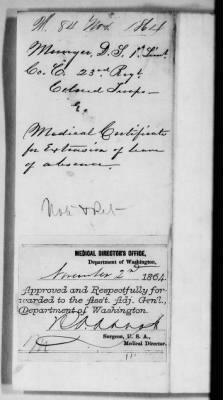 M. 84 Nov. 1864
Munger, D. S. 1st Lieut.
Co. C. 23rd Regt
Colored Troops
Medical Certificate
for Extension of leave
of absence.
MEDICAL DIRECTOR'S OFFICE,
Department of Washington,
November 2nd 1864.
Approved and Respectfully for-
warded to the Ass't. Adj. Gen'l.,
Department of Washington.
Surgeon, U. S. A.,
Medical Director.